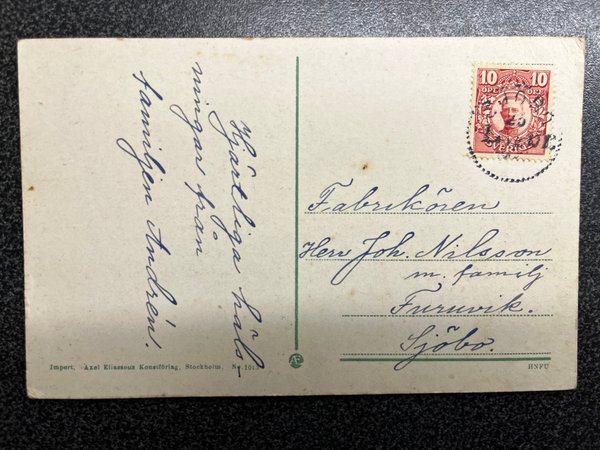 Hjärtliga häls-
ningar från
familjen Andrén.
10 10
ÖRE ÖRE
SVERIGE
Fabrikören
Herr Joh. Nilsson
m. familj
Furuvik.
Sjöbo.
Import. Axel Eliassons Konstförlag, Stockholm. No.
HNFU